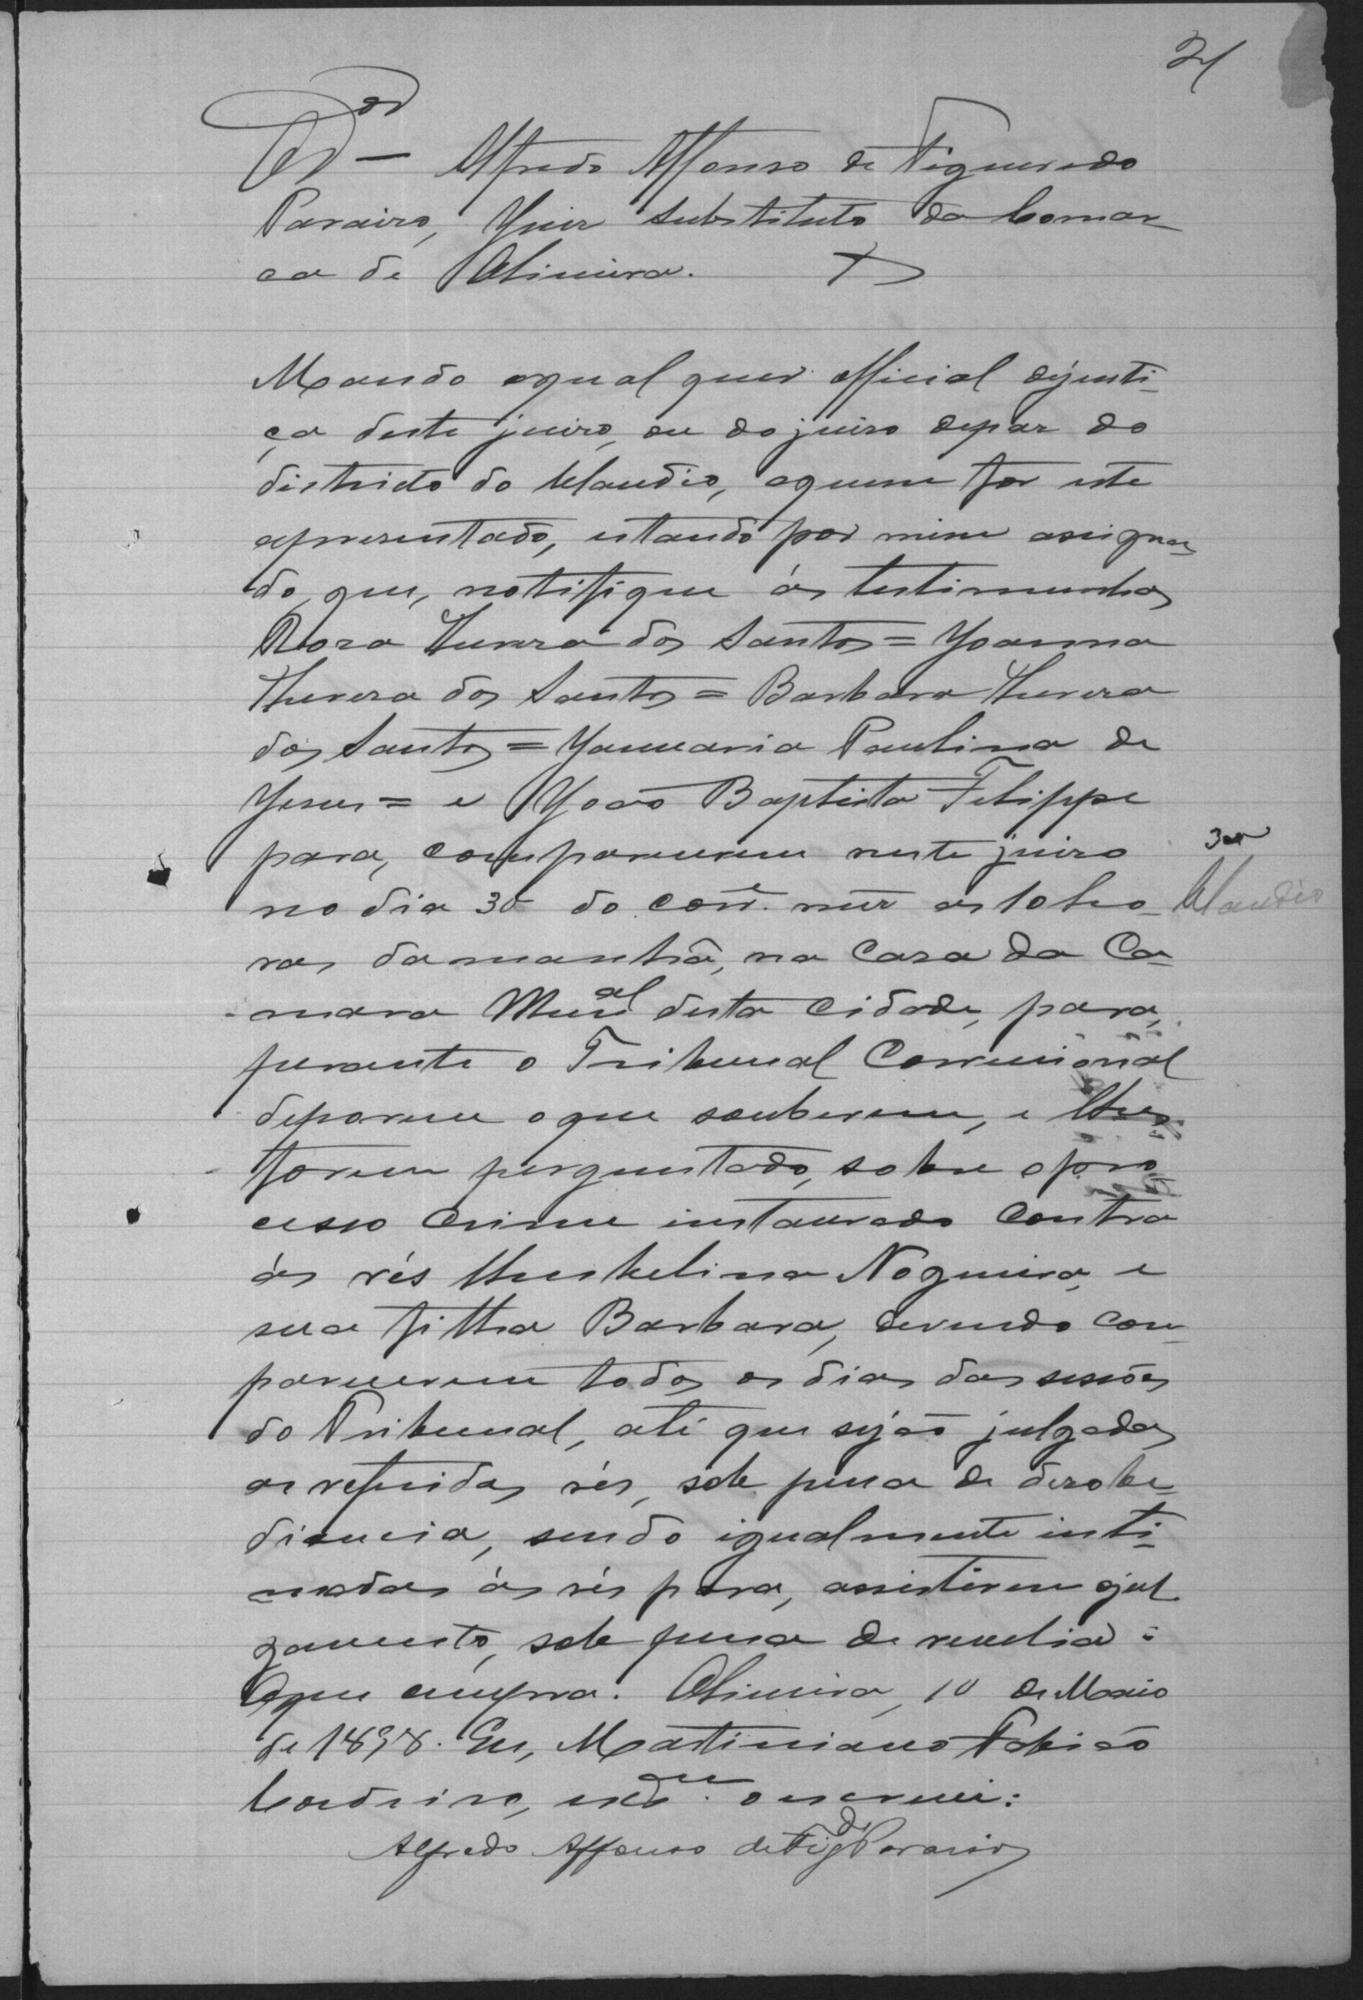 21
Alfredo Affonso de Figueiredo
Paraizo, Juiz substituto da Comar
ca de Oliveira.
Mando aqualquer official dejusti-
ça deste juizo, ou do juizo depaz do
districto do Claudio, aquem for este
apresentado, estando por mim assigna
do, que, notifique ás testimunhas
Roza Thereza dos Santos = Joanna
Thereza dos Santos = Barbara Thereza
dos Santos = Januaria Paulina de
Jesus = e João Baptista Felippe
para, comparecerem neste juizo
no dia 30 do corre. mez as 10 ho-
30
Claudio
ras damanhã, na Casa da Ca-
mara Munal desta Cidade, para,
perante o Tribunal Correcional
deporem oque souberem, e lhes
forem perguntado, sobre opro
cesso crime instaurado contra
ás rés Umbelina Nogueira, e
sua filha Barbara, devendo com
parecerem todos os dias das sessões
do Tribunal, até que sejão julgadas
as referidas rés, sob pena de dezobe-
diencia, sendo igualmente inti-
madas ás rés para, assistirem ojul
gamento, sob pena de revelia:
Oque cumpra. Oliveira, 10 de Maio
de 1898. Eu, Martiniano Fabião
Cordeiro, escram o escrevi:
Alfredo Affonso de Figdo Paraizo